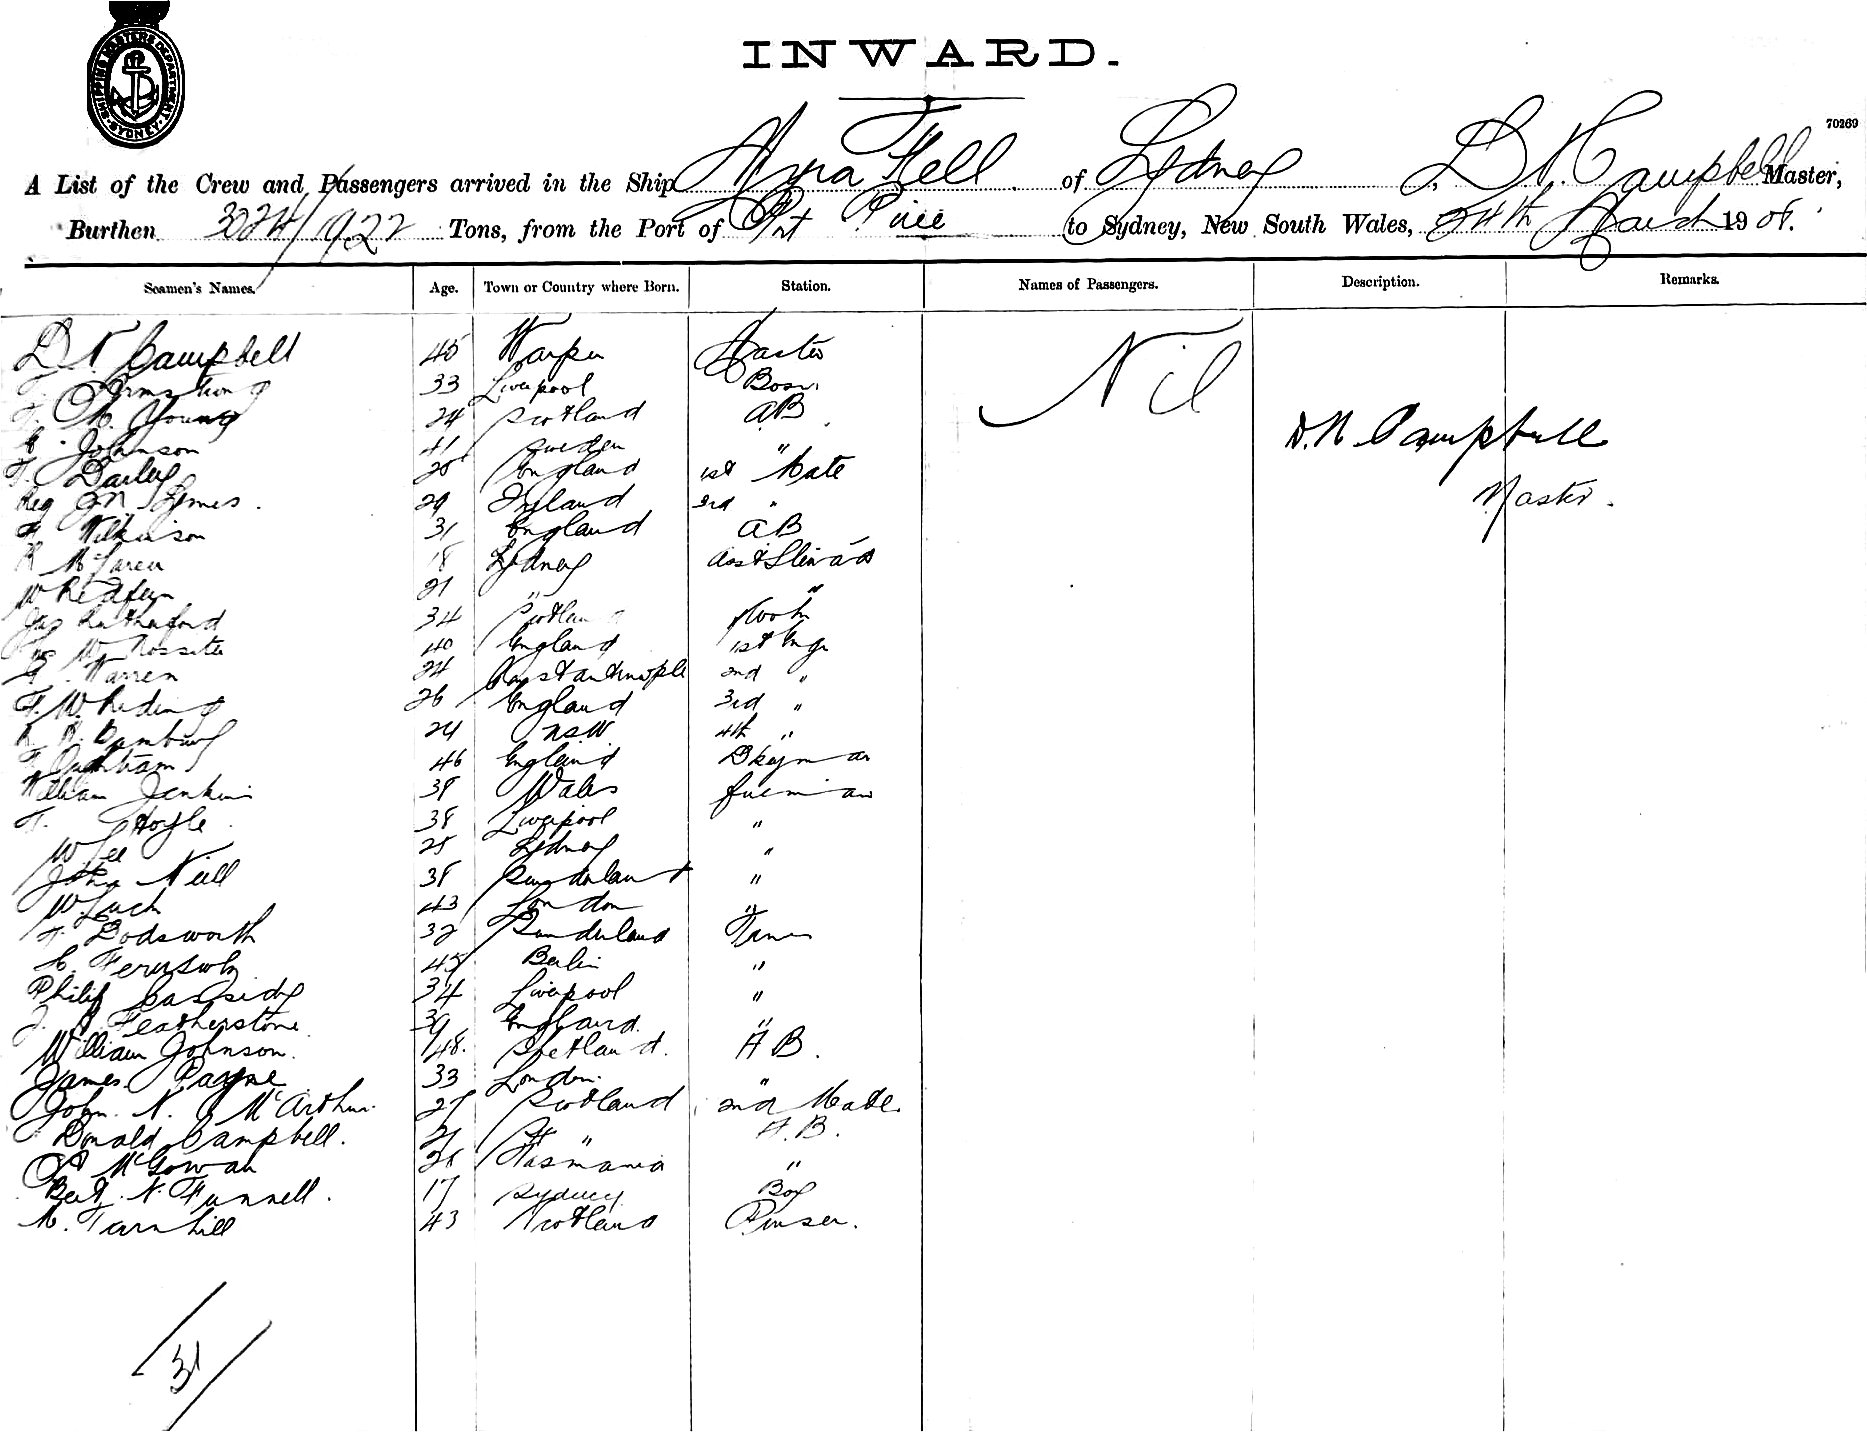 SHIPPING MASTERS DEPARTMENT · SYDNEY ·
INWARD.
70269
A List of the Crew and Passengers arrived in the Ship Myra Fell of Sydney D. N. Campbell Master,
Burthen 3024/1922 Tons, from the Port of Port Pirie to Sydney, New South Wales, 24th March 1908.
Seamen's Names. Age. Town or Country where Born. Station. Names of Passengers. Description. Remarks.
D N Campbell 45 Master Nil
Armstrong 33 Liverpool Bosn.
M. Young 24 Scotland AB D. N. Campbell
Johnson 41 Sweden "
Darley 28 England 1st Mate
Reg 29 Ireland 3rd " Master.
Wilkinson 31 England AB
McLaren 18 Sydney Asst Steward
21 " "
Jas Rutherford 34 Scotland Cook
W Rossiter 40 England 1st Engr
Warren 24 Constantinople 2nd "
F. W. Reding 26 England 3rd "
24 NSW 4th "
46 England Dkeyman
William Jenkins 38 Wales fireman
F. Hoyle 38 Liverpool "
W Lee 25 Sydney "
John Neill 38 Sunderland "
W. 43 London "
F Dodsworth 32 Sunderland Trimmer
C. Ferguson 45 Berlin "
Philip Cassidy 34 Liverpool "
Featherstone 39 England "
William Johnson. 48. Shetland. A B.
James Payne 33 London. "
John. N. McArthur. 27 Scotland 2nd Mate.
Donald Campbell. 21 " A.B.
McGowan 28 Tasmania "
Bert. N. Funnell. 17 Sydney Boy
M. Turnhill 43 Scotland Purser.
31